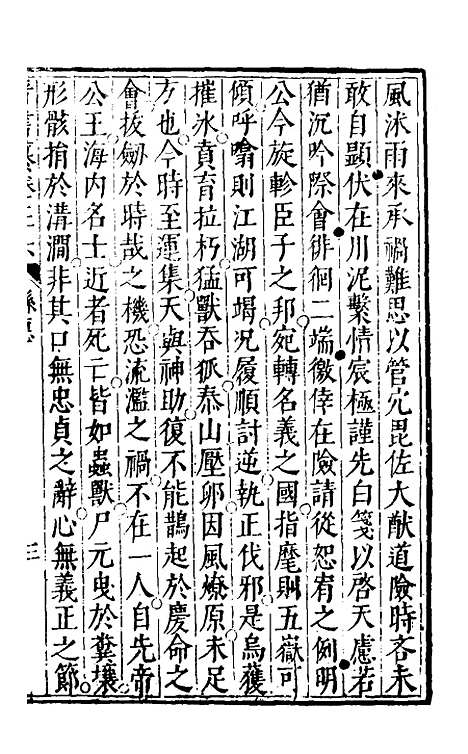 風沐雨來承禍難思以管穴毘佐大猷道險時吝未
敢自顯伏在川泥繫情宸極謹先白箋以啓天慮若
猶沉吟際會徘徊二端徼倖在險請從恕宥之例明
公今旋軫臣子之邦宛轉名義之國指麾則五嶽可
傾呼噏則江湖可竭况履順討逆執正伐邪是烏獲
摧氷賁育拉朽猛獸吞狐泰山壓卵因風燎原未足
方也今時至運集天與神助復不能鵲起於慶命之
會拔劒於時哉之機恐流濫之禍不在一人自先帝
公王海内名士近者死亡皆如蟲獸尸元曳於糞壤
形骸捐於溝澗非其口無忠貞之辭心無義正之節
三